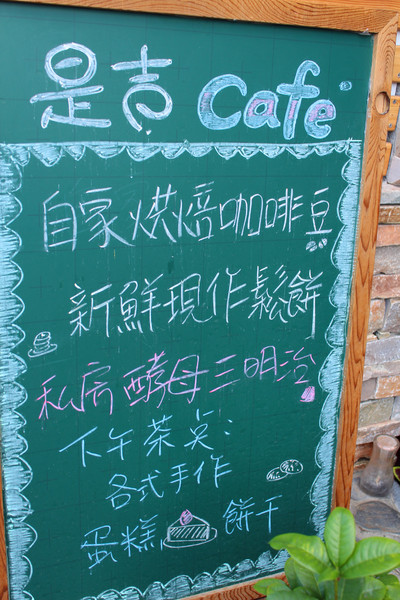 是吉 Cafe
自家烘焙咖啡豆
新鮮現作鬆餅
私房酵母三明治
下午茶點:
各式手作
蛋糕 餅干